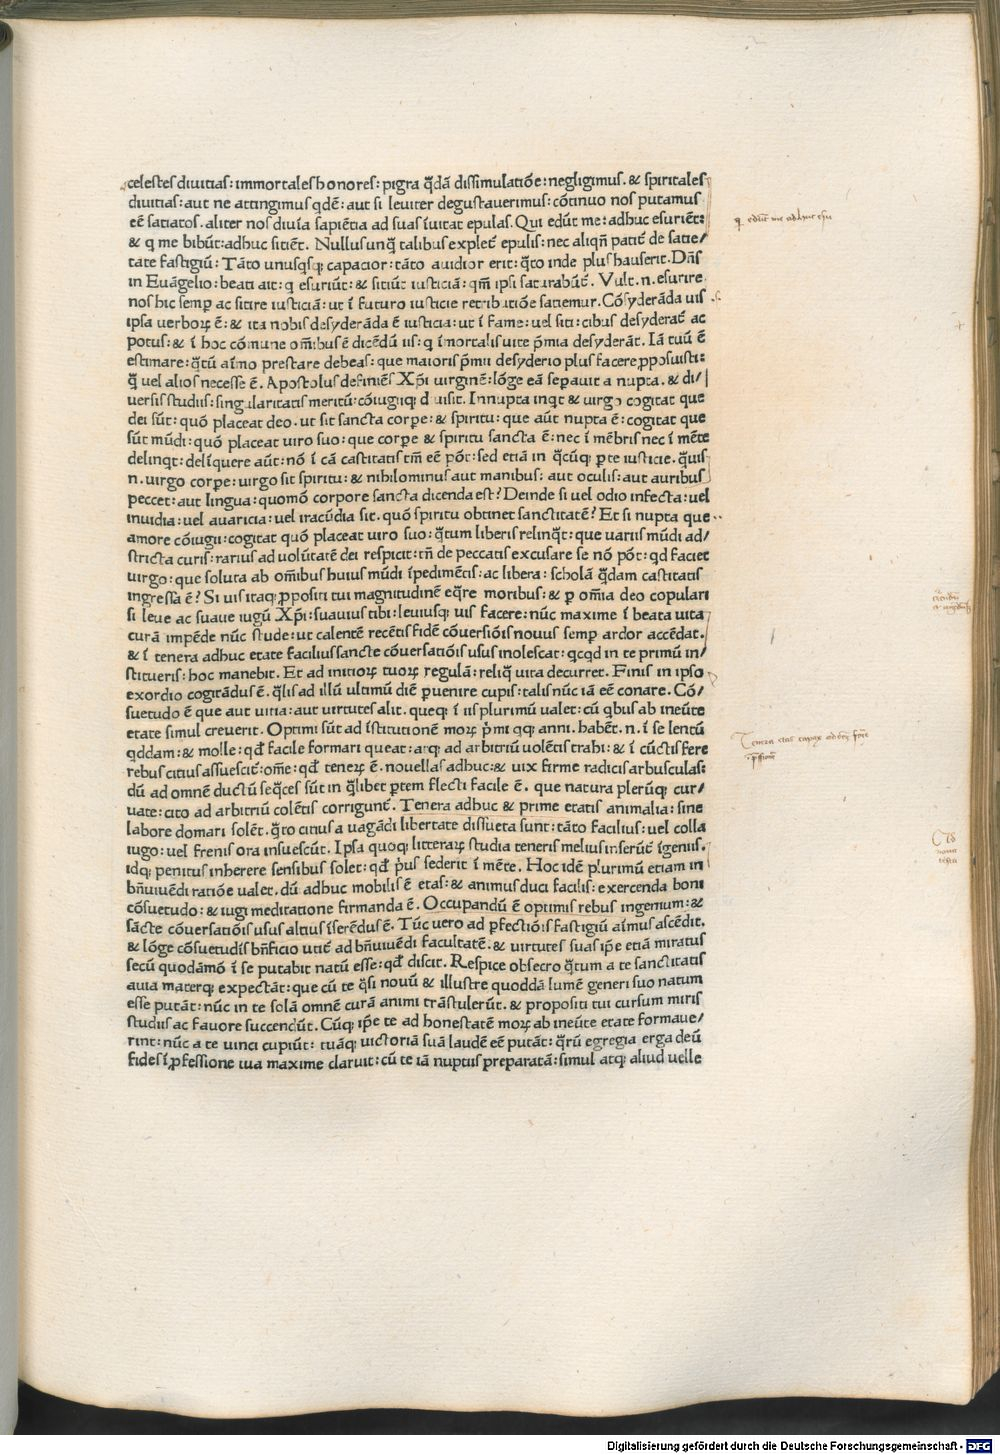 celestes diuitias: immortales honores: pigra q̄dā dissimulatiōe: negligimus. & spiritales
diuitias: aut ne attingimus qdē: aut si leuiter degustauerimus: cōtinuo nos putamus
eē satiatos. aliter nos diuīa sapiētia ad suas īuitat epulas. Qui edūt me: adhuc esuriēt:
& q me bibūt: adhuc sitiēt. Nullus unq̄ talibus explet̄ epulis: nec aliqn̄ patit̄ de satie/
tate fastigiū: Tāto unusqsq; capacior: tāto auidior erit: q̄to inde plus hauserit. Dn̄s
in Euāgelio: beati ait: q esuriūt: & sitiūt iusticiā: qm̄ ipsi saturabūt̄. Vult. n. esurire
nos hic semp̱ ac sitire iusticiā: ut ī futuro iusticie retributiōe satiemur. Cōsyderāda uis
ipsa uerboꝝ ē: & ita nobis desyderāda ē iusticia: ut ī fame: uel siti: cibus desyderat̄ ac
potus: & ī hoc cōmune om̄ibus ē dicēdū iis: q īmortalis uite p̄mia desyderāt. Iā tuū ē
estimare: q̄tū aīmo prestare debeas: que maioris p̄mii desyderio plus facere ꝓposuisti:
q̄ uel alios necesse ē. Apostolus definiēs Xp̄i uirginē: lōge eā separauit a nupta. & di/
uersis studiis: singularitatis meritū: cōiugiiq; diuisit. Innupta inqt & uirgo cogitat que
dei sūt: quō placeat deo. ut sit sancta corpe: & spiritu: que aūt nupta ē: cogitat que
sūt mūdi: quō placeat uiro suo: que corꝑe & spiritu sancta ē: nec ī mēbris nec ī mēte
delinqt: delīquere aūt: nō ī cā castitatis tm̄ eē pōt: sed etiā in q̄cūq; ꝑte iusticie. q̄uis
n. uirgo corꝑe: uirgo sit spiritu: & nihilominus aut manibus: aut oculis: aut auribus
peccet: aut lingua: quomō corpore sancta dicenda est? Deinde si uel odio infecta: uel
inuidia: uel auaricia: uel iracūdia sit. quō spiritu obtinet sanctitatē? Et si nupta que
amore cōiugii: cogitat quō placeat uiro suo: q̄tum liberis relinq̄t: que uariis mūdi ad/
stricta curis: rarius ad uolūtatē dei respicit: tn̄ de peccatis excusare se nō pōt: qd faciet
uirgo: que soluta ab om̄ibus huius mūdi īpedimētis: ac libera: scholā q̄dam castitatis
ingressa ē? Si uis itaq; ꝓpositi tui magnitudinē eq̄re moribus: & ꝑ om̄ia deo copulari
si leue ac suaue iugū Xp̄i: suauius tibi: leuiusq; uis facere: nūc maxime ī beata uita
curā impēde nūc stude: ut calentē recētis fidē cōuersiōis nouus semꝑ ardor accēdat.
& ī tenera adhuc etate facilius sancte cōuersatiōis usus inolescat: qcqd in te primū in/
stitueris: hoc manebit. Et ad initioꝝ tuoꝝ regulā: reliq̄ uita decurret. Finis in ipso
exordio cogitādus ē. q̄lis ad illū ultimū diē ꝑuenire cupis: talis nūc iā eē conare. Cō/
suetudo ē que aut uitia: aut uirtutes alit. queq; ī iis plurimū ualet: cū qbus ab ineūte
etate simul creuerit. Optimi sūt ad īstitutionē moꝝ p̄mi qq; anni. habēt. n. ī se lentū
qddam: & molle: qd̄ facile formari queat: atq; ad arbitriū uolētis trahi: & ī cūctis fere
rebus citius assuescit̄: om̄e: qd̄ teneꝝ ē. nouellas adhuc: & uix firme radicis arbusculas:
dū ad omnē ductū seq̄ces sūt in q̄libet ꝑtem flecti facile ē. que natura plerūq; cur/
uate: cito ad arbitriū colētis corrigunt̄. Tenera adhuc & prime etatis animalia: sine
labore domari solēt. q̄to citius a uagādi libertate dissueta sunt: tāto facilius: uel colla
iugo: uel frenis ora insuescūt. Ipsa quoq; litteraꝝ studia teneris melius inserūt̄ īgeniis.
idq; penitus inherere sensibus solet: qd̄ p̄us sederit ī mēte. Hoc idē plurimū etiam in
bn̄uiuēdi ratiōe ualet. dū adhuc mobilis ē etas: & animus duci facilis: exercenda boni
cōsuetudo: & iugi meditatione firmanda ē. Occupandū ē optimis rebus ingenium: &
sācte cōuersatiōis usus altius īserēdus ē. Tūc uero ad ꝑfectiōis fastigiū aīmus ascēdit.
& lōge cōsuetudīs bn̄ficio utit̄ ad bn̄uiuēdi facultatē. & uirtutes suas ip̄e etiā miratus
secū quodāmō ī se putabit natū esse: qd̄ discit. Respice obsecro q̄tum a te sanctitatis
auia materq; expectāt: que cū te q̄si nouū & illustre quoddā lumē generi suo natum
esse putāt: nūc in te solā omnē curā animi trāstulerūt. & propositi tui cursum miris
studiis ac fauore succendūt. Cūq; ip̄e te ad honestatē moꝝ ab ineūte etate formaue/
rint: nūc a te uinci cupiūt: tuāq; uictoriā suā laudē eē putāt: q̄rū egregia erga deū
fides ī ꝓfessione tua maxime claruit: cū te iā nuptiis preparatā: simul atq; aliud uelle
q edūt me adhuc esu
Tenera etas capax
Digitalisierung gefördert durch die Deutsche Forschungsgemeinschaft - DFG